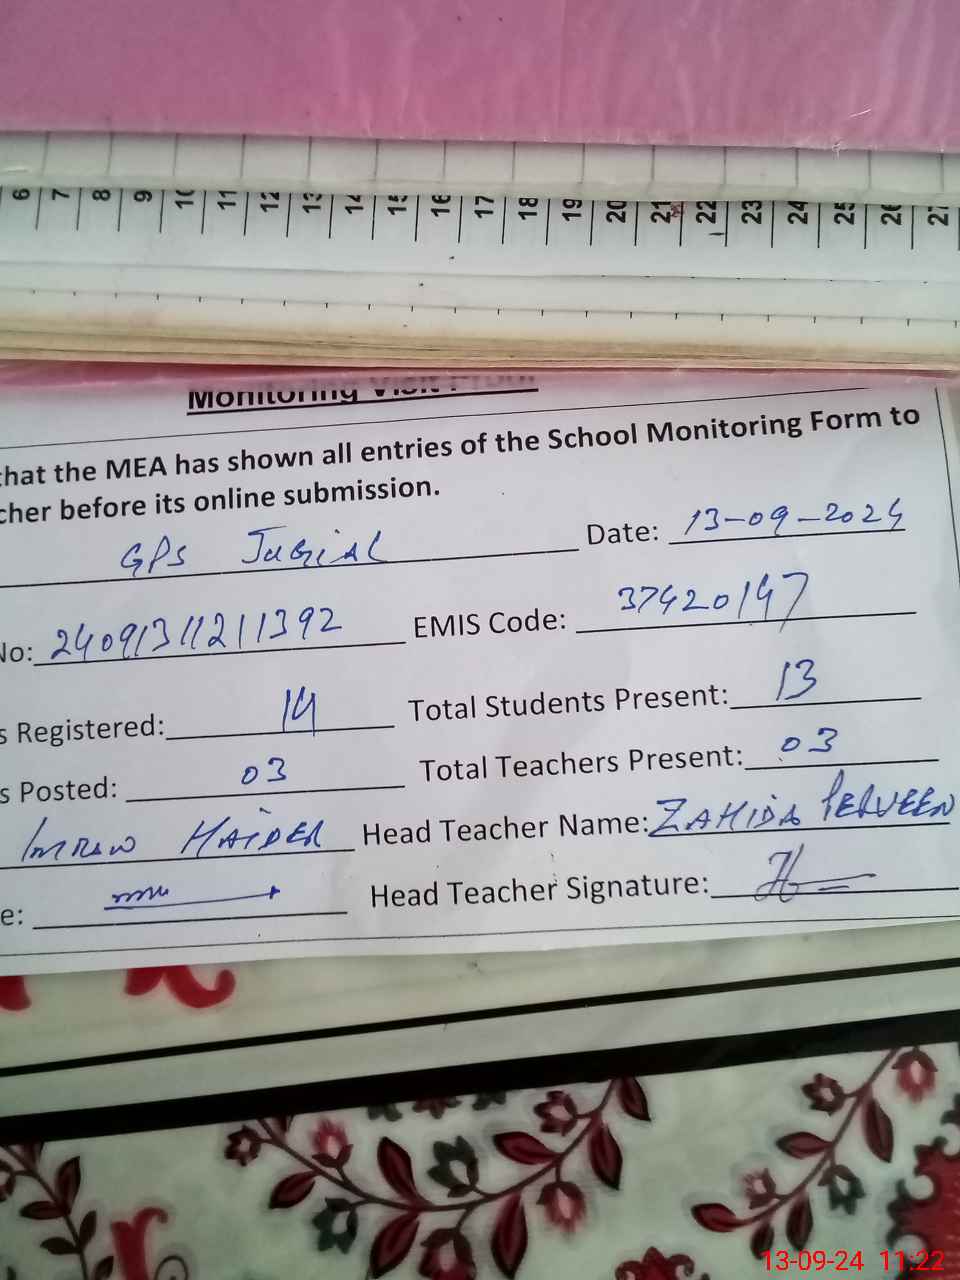 6 7 8 9 10 11 12 13 14 15 16 17 18 19 20 21 22 23 24 25 26 27
Monitoring Visit Proof
that the MEA has shown all entries of the School Monitoring Form to
cher before its online submission.
GPS Jugial Date: 13-09-2024
No: 24091311211392 EMIS Code: 37420147
s Registered: 14 Total Students Present: 13
s Posted: 03 Total Teachers Present: 03
Imran HAIDER Head Teacher Name: ZAHIDA PERVEEN
e: Head Teacher Signature:
13-09-24 11:22